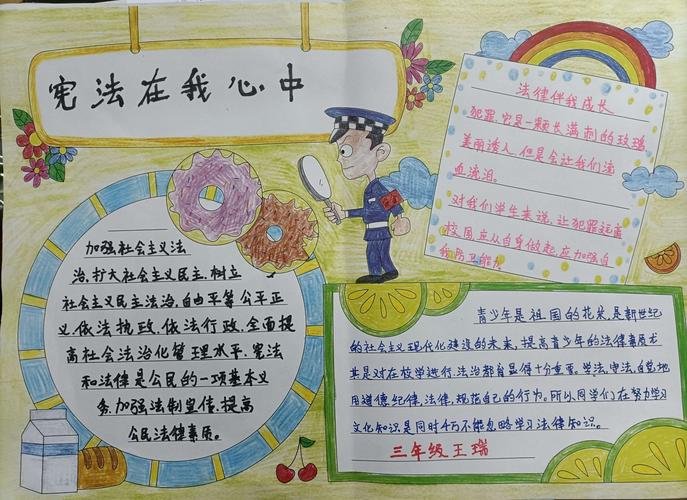 宪法在我心中
法律伴我成长
犯罪,它是一颗长满刺的玫瑰,
美丽诱人,但是会让我们流
血流泪。
对我们学生来说,让犯罪远离
校园应从自身做起,应加强自
我防卫能力
加强社会主义法
治,扩大社会主义民主,树立
社会主义民主法治,自由平等公平正
义依法执政,依法行政,全面提
高社会法治化管理水平,宪法
和法律是公民的一项基本义
务,加强法制宣传,提高
公民法律素质。
青少年是祖国的花朵,是新世纪
的社会主义现代化建设的未来,提高青少年的法律素质尤
其是对在校学进行,法治都自显得十分重要。学法,守法,自觉地
用道德,纪律,法律,规范自己的行为。所以,同学们在努力学习
文化知识是同时千万不能忽略学习法律知识。
三年级王瑞